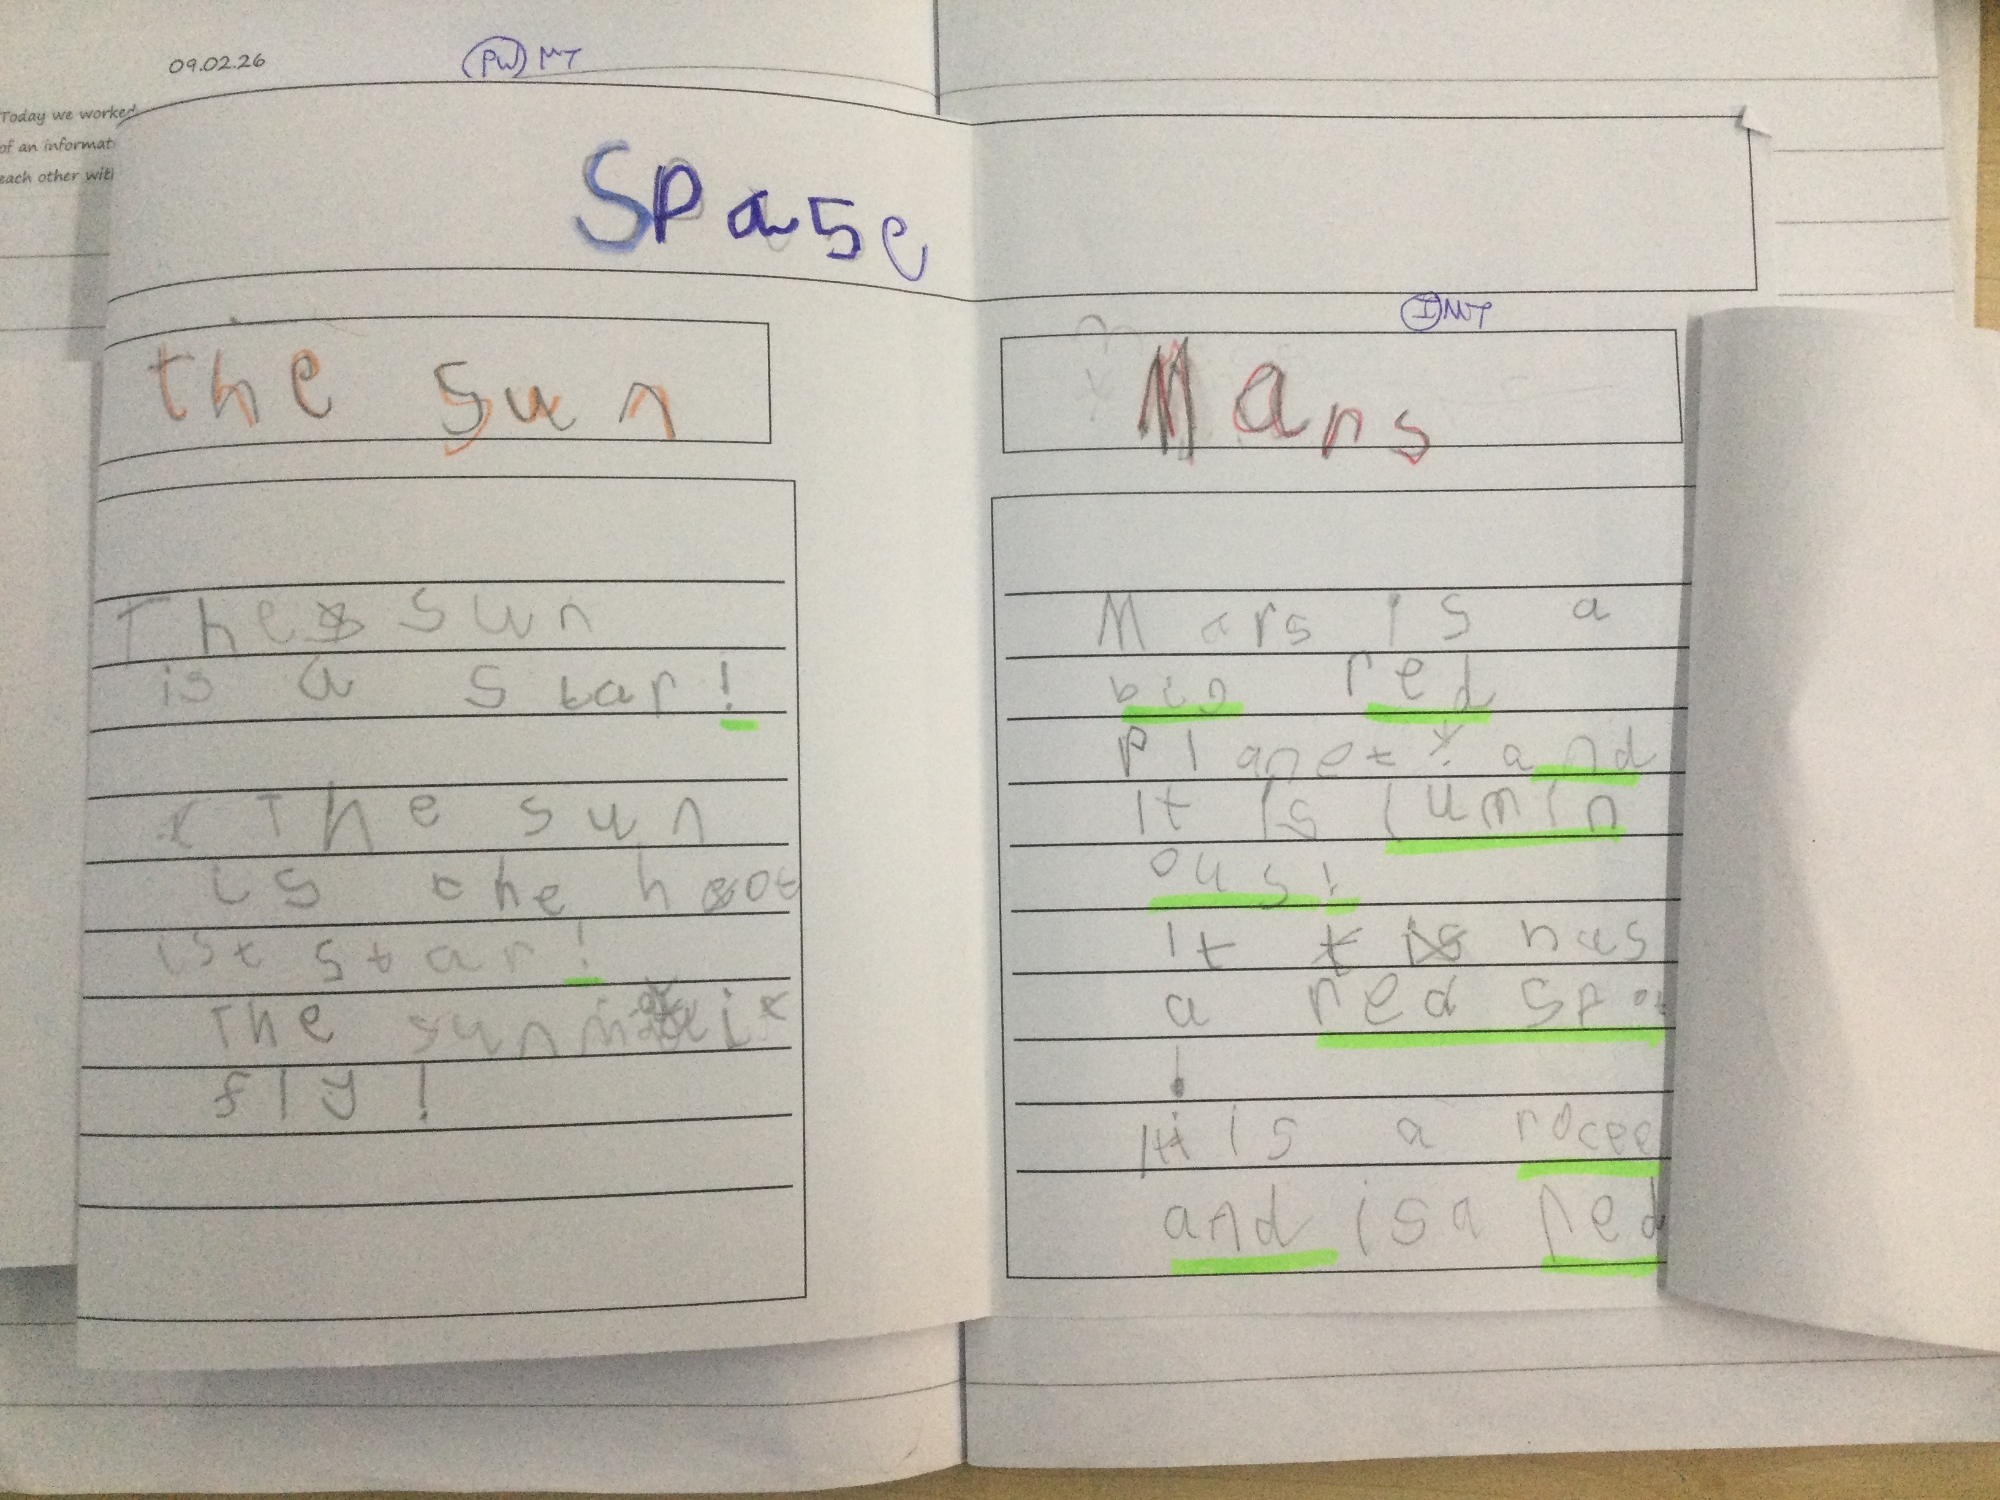 09.02.26 PW MT
Today we worked
of an informat
each other wit
Spase
the sun
The sun
is a star!
The sun
is the hot
ist star!
The sun
fly!
I MT
Mars
Mars is a
big red
Planet and
It is lumin
ous!
It has
a red spot
!
It is a rocee
and is a red